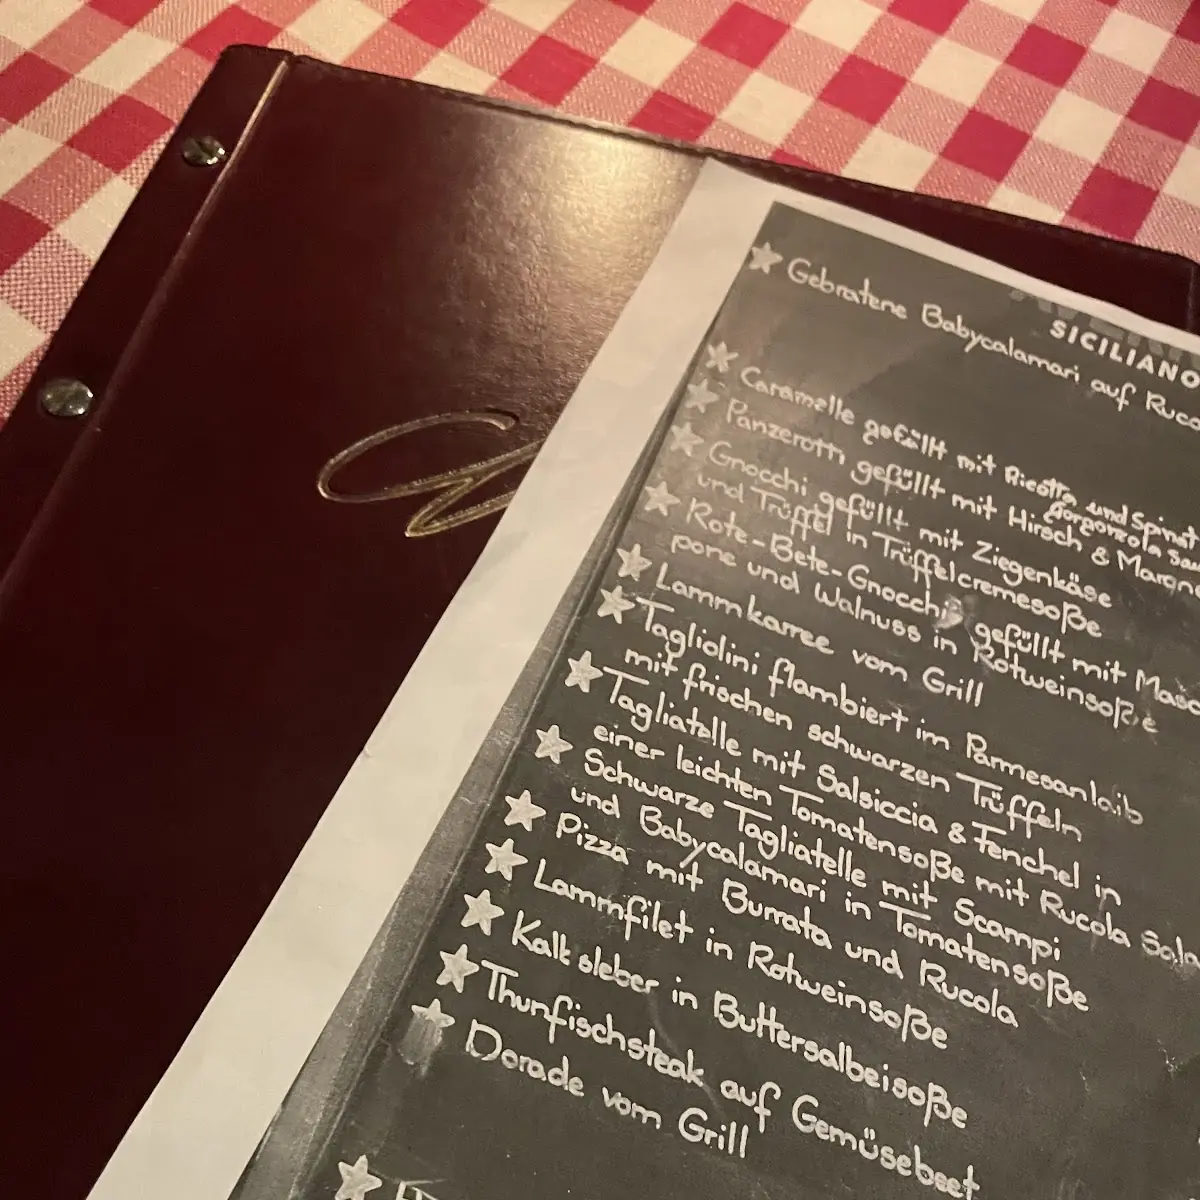 SICILIANO
Gebratene Babycalamari auf
Caramelle gefüllt mit Ricotta und Spinat
Gorgonzola
Panzerotti gefüllt mit Hirsch &
Gnocchi gefüllt mit Ziegenkäse
und Trüffel in Trüffelcremesoße
Rote-Bete-Gnocchi gefüllt mit
pone und Walnuss in Rotweinsoße
Lammkarree vom Grill
Tagliolini flambiert im Parmesanlaib
mit frischen schwarzen Trüffeln
Tagliatelle mit Salsiccia & Fenchel in
einer leichten Tomatensoße mit Rucola
Schwarze Tagliatelle mit Scampi
und Babycalamari in Tomatensoße
Pizza mit Burrata und Rucola
Lammfilet in Rotweinsoße
Kalbsleber in Buttersalbeisoße
Thunfischsteak auf Gemüsebeet
Dorade vom Grill